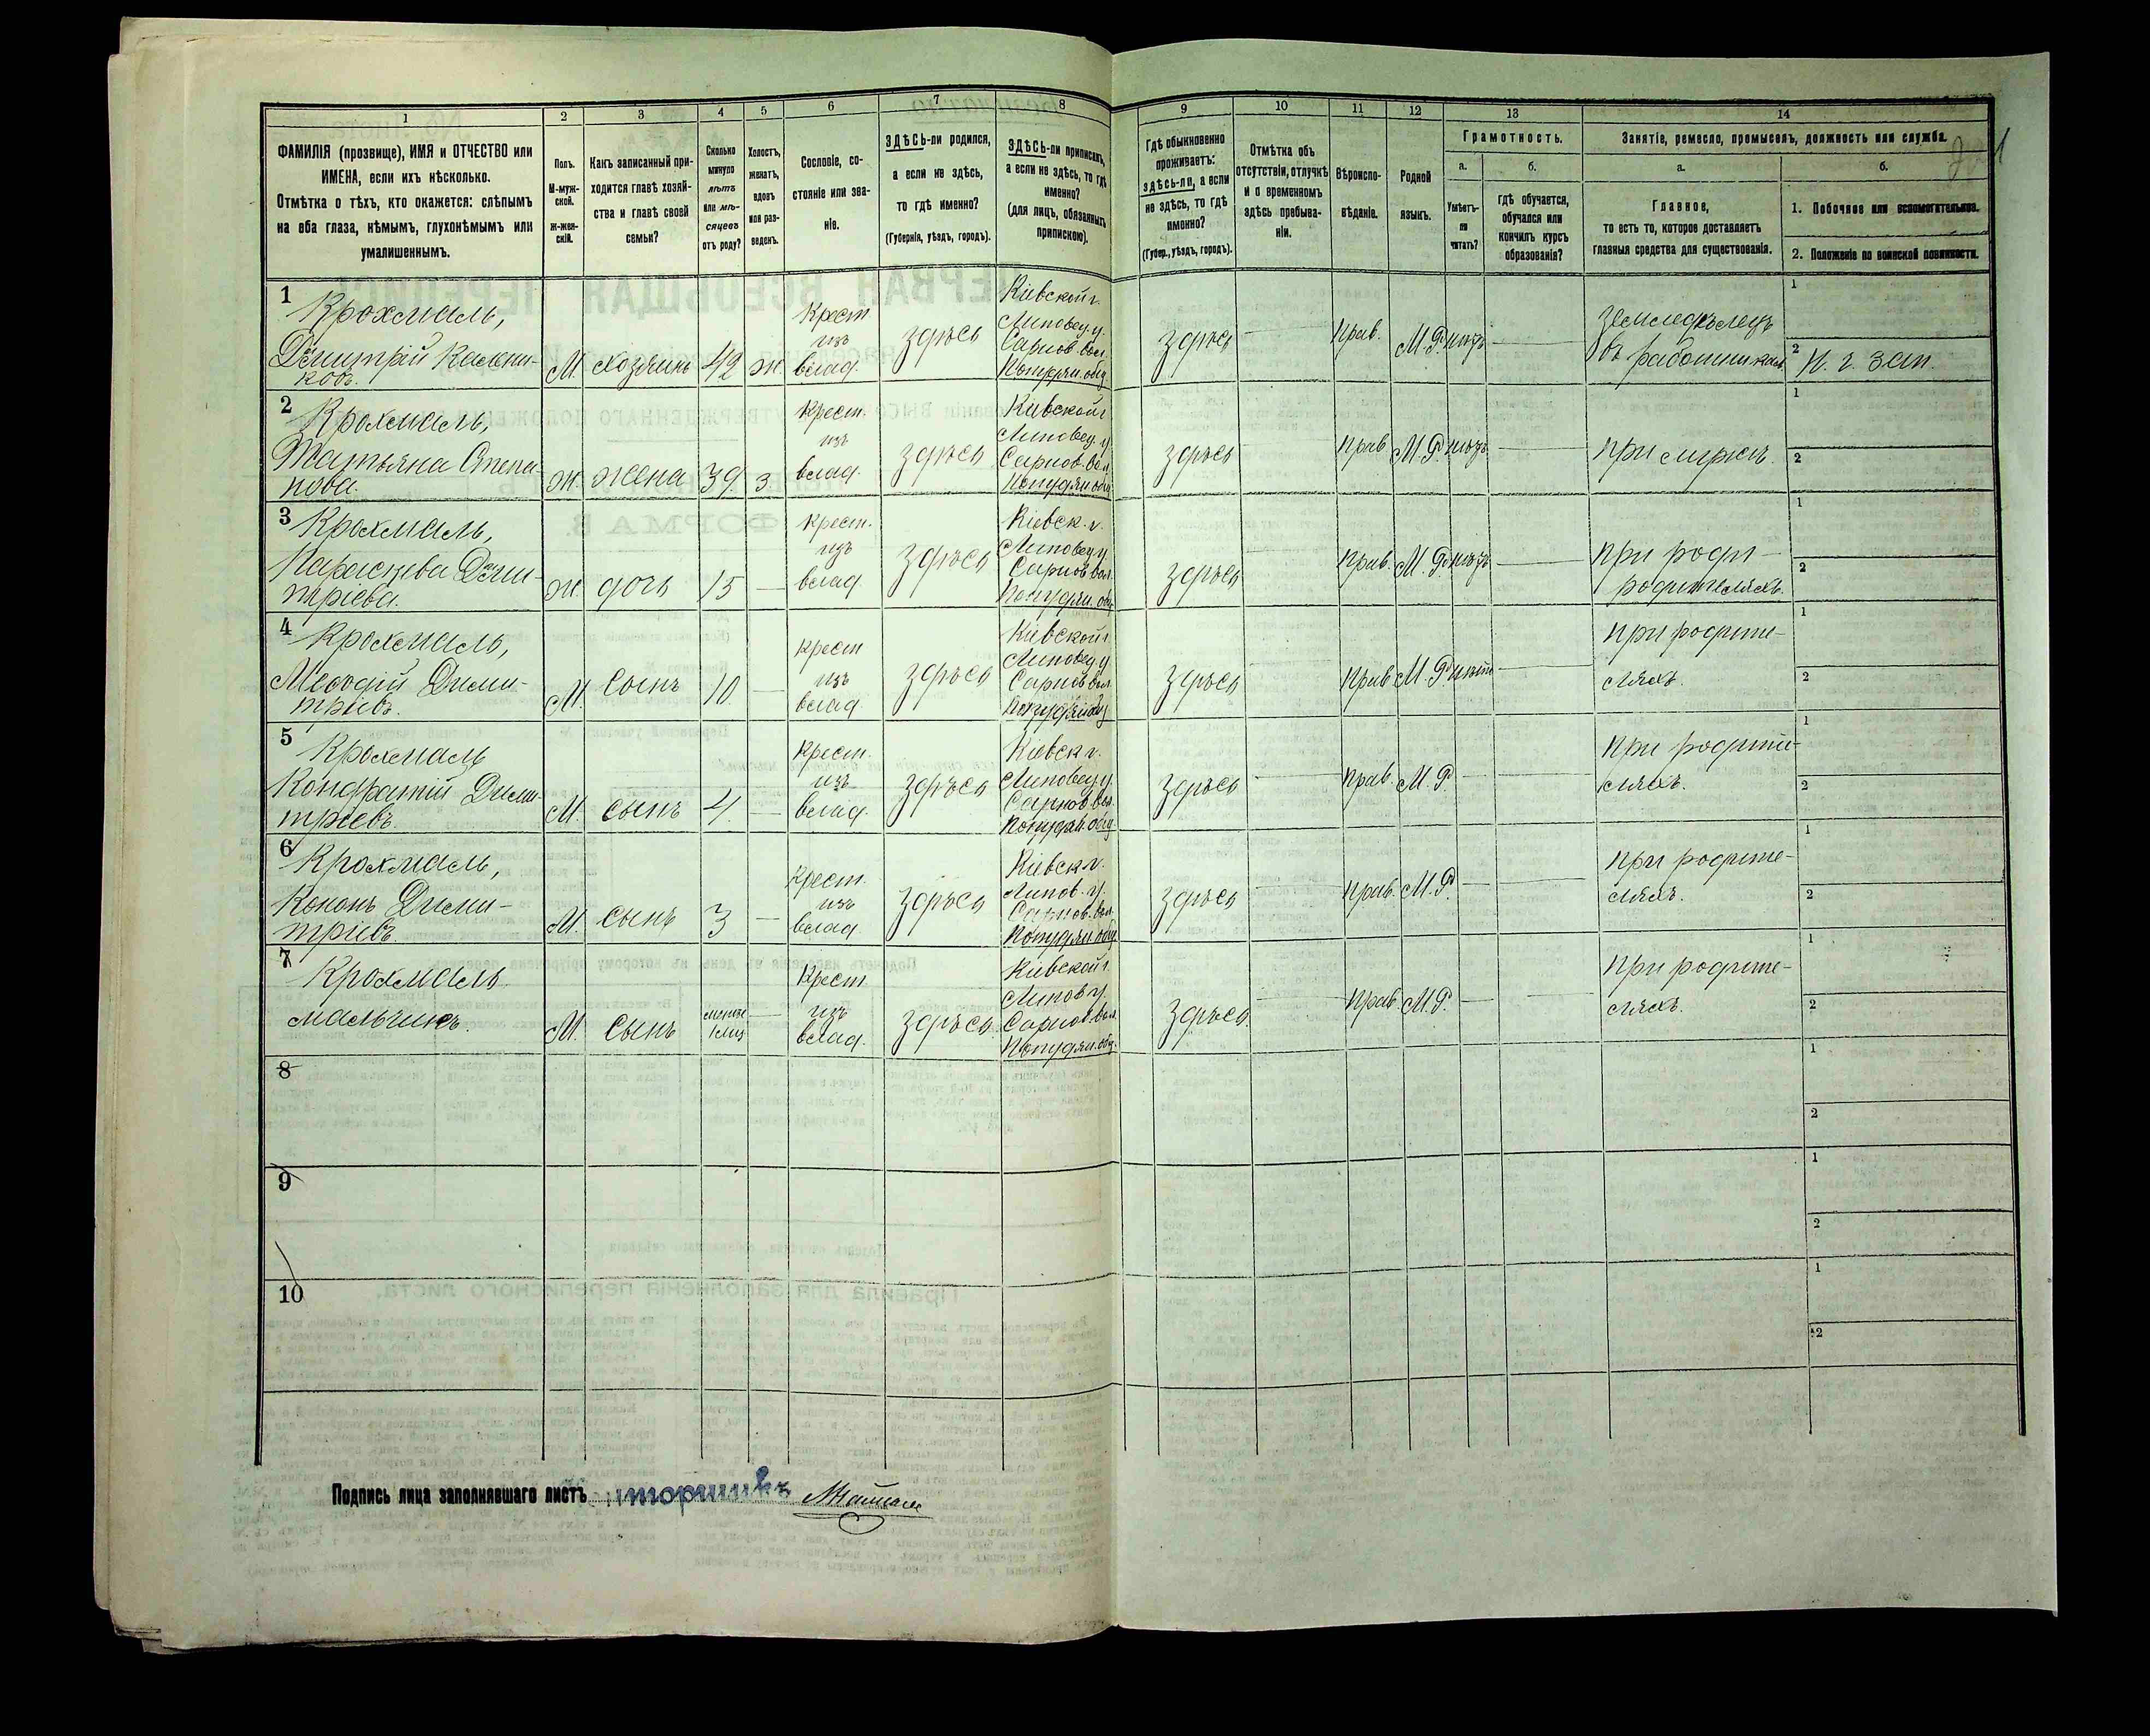 1 2 3 4 5 6 7 8 9 10 11 12 13 14
ФАМИЛІЯ (прозвище), ИМЯ и ОТЧЕСТВО или
ИМЕНА, если ихъ нѣсколько.
Отмѣтка о тѣхъ, кто окажется: слѣпымъ
на оба глаза, нѣмымъ, глухонѣмымъ или
умалишеннымъ.
Полъ.
М-муж-
ской.
ж-жен-
скій.
Какъ записанный при-
ходится главѣ хозяй-
ства и главѣ своей
семьи?
Сколько
минуло
лѣтъ
или мѣ-
сяцевъ
отъ роду?
Холостъ,
женатъ,
вдовъ
или раз-
веденъ.
Сословіе, со-
стояніе или зва-
ніе.
ЗДѢСЬ-ли родился,
а если не здѣсь,
то гдѣ именно?
(Губернія, уѣздъ, городъ).
ЗДѢСЬ-ли приписанъ,
а если не здѣсь, то гдѣ
именно?
(для лицъ, обязанныхъ
припискою).
Гдѣ обыкновенно
проживаетъ:
здѣсь-ли, а если
не здѣсь, то гдѣ
именно?
(Губер., уѣздъ, городъ).
Отмѣтка объ
отсутствіи, отлучкѣ
и о временномъ
здѣсь пребыва-
ніи.
Вѣроиспо-
вѣданіе.
Родной
языкъ.
Грамотность.
а.
Умѣетъ-
ли
читать?
б.
гдѣ обучается,
обучался или
кончилъ курсъ
образованія?
Занятіе, ремесло, промыселъ, должность или служба.
а.
Главное,
то есть то, которое доставляетъ
главныя средства для существованія.
б.
1. Побочное или вспомогательное.
2. Положеніе по воинской повинности.
1
Крохмаль,
Димитрій
М. хозяинъ 42 ж.
Крест
изъ
влад.
здѣсь
Кіевской г.
Липовец. у.
Сарнов. вол.
здѣсь
Прав.
М. Р.
земледѣлецъ
въ работникахъ
1
2
2
Крохмаль,
Татьяна Степа-
нова.
ж. жена 39 з.
Крест.
изъ
влад.
здѣсь
Кіевской г
Липовец. у
Сарнов. вол.
здѣсь
Прав
М. Р.
при мужѣ
1
2
3
Крохмаль,
Параскева Дими-
тріева.
ж. дочь 15
Крест.
изъ
влад.
здѣсь
Кіевск. г.
Липовец. у
Сарнов. вол.
здѣсь
Прав.
М. Р.
при роди-
родителяхъ.
1
2
4
Крохмаль,
Меѳодій Дими-
тріевъ.
М. сынъ 10
Крест
изъ
влад
здѣсь
Кіевской г.
Липовец. у
Сарнов. вол.
здѣсь
Прав
М. Р.
при родите-
ляхъ.
1
2
5
Крохмаль
Кондратій Дими-
тріевъ
М. сынъ 4
Крест.
изъ
влад.
здѣсь
Кіевск г.
Липовец. у
Сарнов. вол.
здѣсь
Прав.
М. Р.
при родите-
ляхъ.
1
2
6
Крохмаль,
Кононъ Дими-
тріевъ.
М. сынъ 3
Крест.
изъ
влад
здѣсь
Кіевск г.
Липов. у.
Сарнов. вол.
здѣсь
Прав.
М. Р.
при родите-
ляхъ.
1
2
7
Крохмаль
мальчикъ.
М. сынъ
Крест
изъ
влад.
здѣсь
Кіевской г.
Липов у.
Сарнов. вол.
здѣсь
Прав.
М. Р.
при родите-
ляхъ.
1
2
8
1
2
9
1
2
10
1
2
Подпись лица заполнявшаго листъ